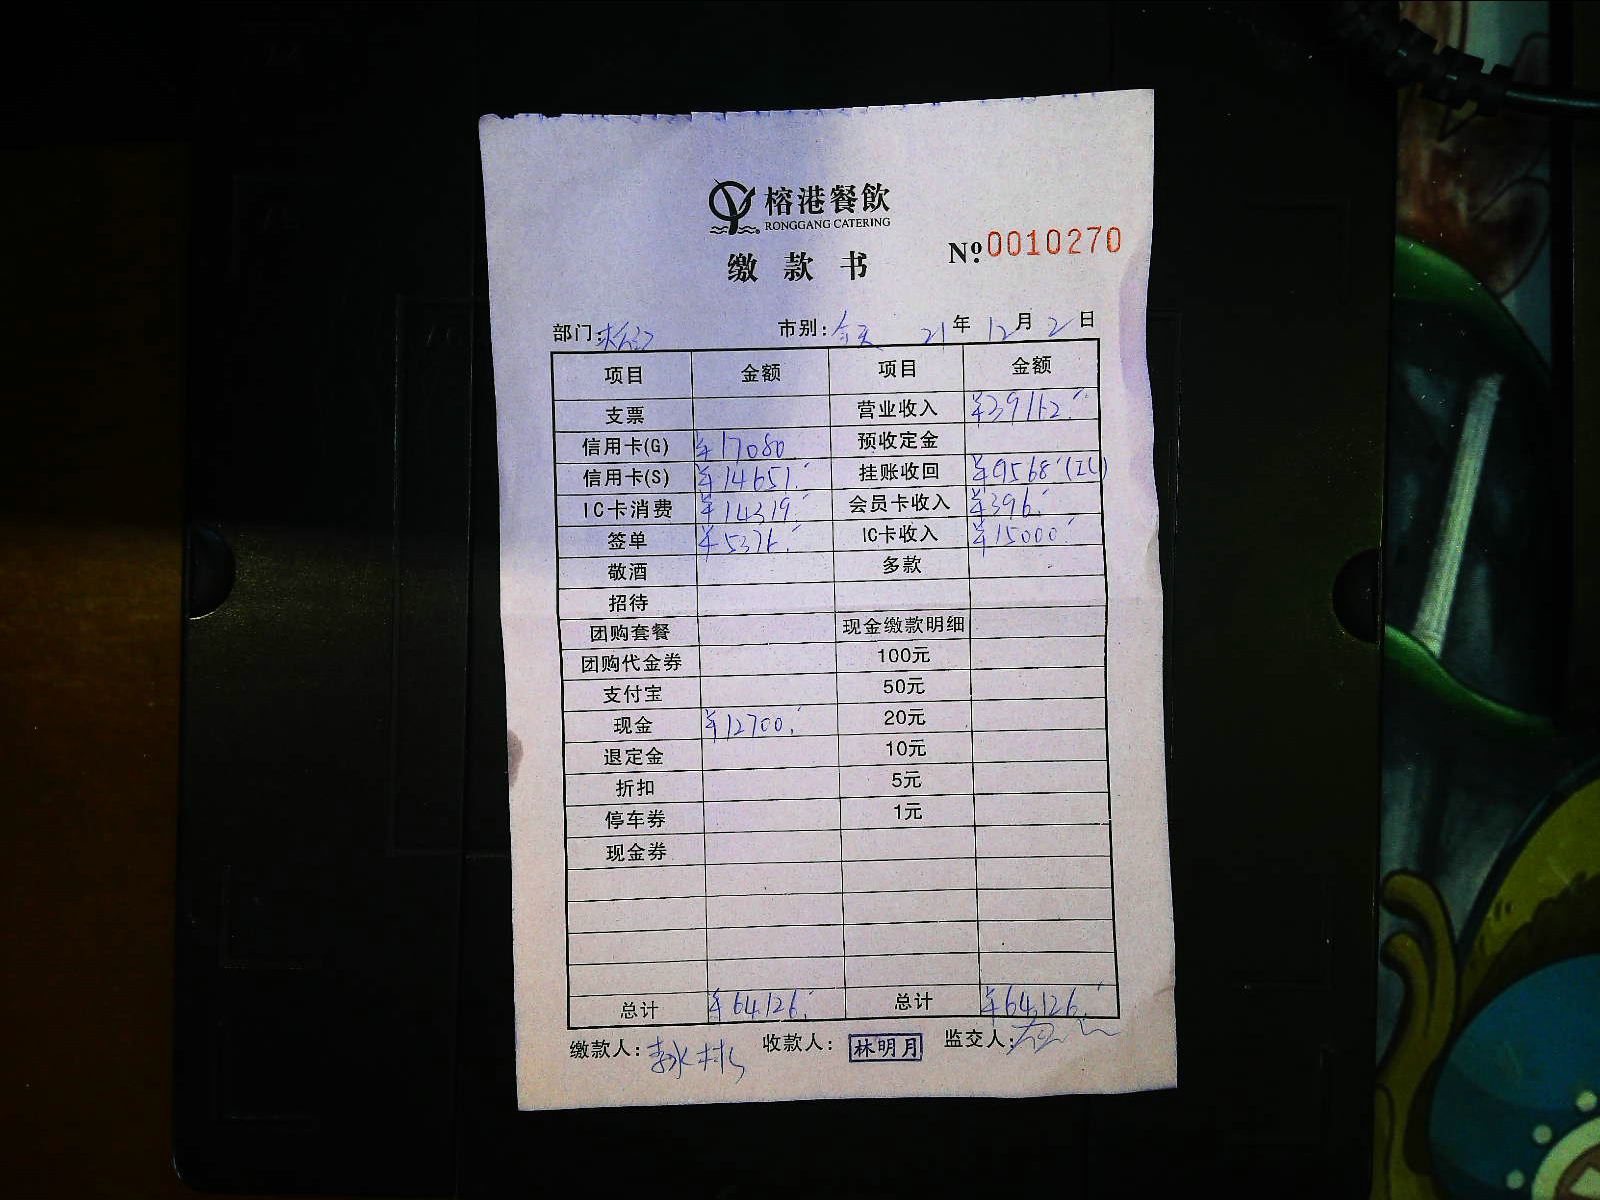 榕港餐飲
RONGGANG CATERING
缴款书
№ 0010270
部门: 市别: 全天 21年 12月 2日
项目 金额 项目 金额
支票 营业收入 ¥39162.-
信用卡(G) ¥17080 预收定金
信用卡(S) ¥14651.- 挂账收回 ¥9568.-(IC)
IC卡消费 ¥14319.- 会员卡收入 ¥396.-
签单 ¥5376.- IC卡收入 ¥15000.-
敬酒 多款
招待
团购套餐 现金缴款明细
团购代金券 100元
支付宝 50元
现金 ¥12700.- 20元
退定金 10元
折扣 5元
停车券 1元
现金券
总计 ¥64126.- 总计 ¥64126.-
缴款人: 收款人: 林明月 监交人: